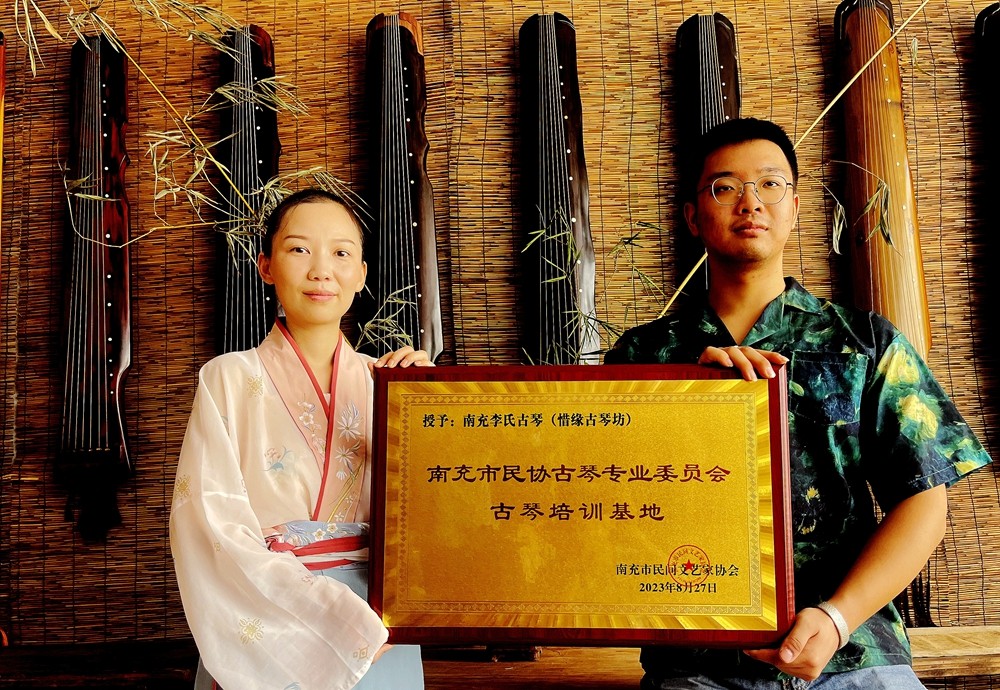 授予：南充李氏古琴（惜缘古琴坊）
南充市民协古琴专业委员会
古琴培训基地
南充市民间文艺家协会
2023年8月27日